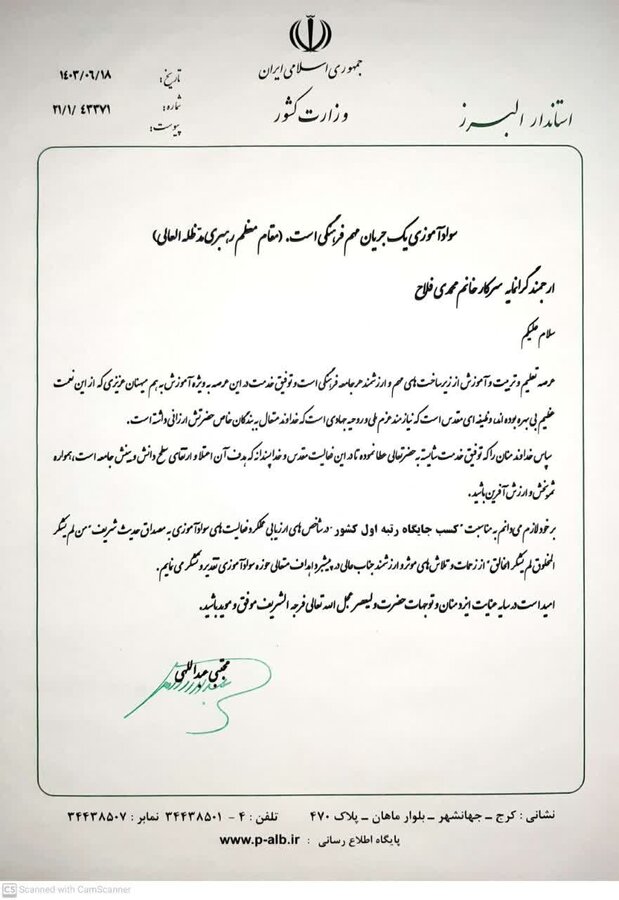 جمهوری اسلامی ایران
وزارت کشور
استاندار البرز
تاریخ: ۱۴۰۳/۰۶/۱۸
شماره: ۲۱/۱/ ۴۳۳۷۱
پیوست:
سوادآموزی یک جریان مهم فرهنگی است. (مقام معظم رهبری مدظله العالی)
ارجمند گرانمایه سرکار خانم محمدی فلاح
سلام علیکم
عرصه تعلیم و تربیت و آموزش از زیرساخت های مهم و ارزشمند هر جامعه فرهنگی است و توفیق خدمت در این عرصه به ویژه آموزش به هم میهنان عزیزی که از این نعمت
عظیم بی بهره بوده اند، وظیفه ای مقدس است که نیازمند عزم ملی و روحیه جهادی است که خداوند متعال به بندگان خاص حضرتش ارزانی داشته است.
سپاس خداوند منان را که توفیق خدمت شایسته به حضرتعالی عطا نموده تا در این فعالیت مقدس و خداپسندانه که هدف آن اعتلا و ارتقای سطح دانش و بینش جامعه است، همواره
ثمربخش و ارزش آفرین باشید.
بر خود لازم می دانم به مناسبت "کسب جایگاه رتبه اول کشور" در شاخص های ارزیابی عملکرد فعالیت های سوادآموزی به مصداق حدیث شریف "من لم یشکر
المخلوق لم یشکر الخالق" از زحمات و تلاش های موثر و ارزشمند جناب عالی در پیشبرد اهداف متعالی حوزه سوادآموزی تقدیر و تشکر می نمایم.
امید است در سایه عنایت ایزد منان و توجهات حضرت ولیعصر عجل الله تعالی فرجه الشریف موفق و موید باشید.
مجتبی عبداللهی
نشانی : کرج ـ جهانشهر ـ بلوار ماهان ـ پلاک ۴۷۰ تلفن : ۴ - ۳۴۴۳۸۵۰۱ نمابر : ۳۴۴۳۸۵۰۷
پایگاه اطلاع رسانی : www.p-alb.ir
CS Scanned with CamScanner